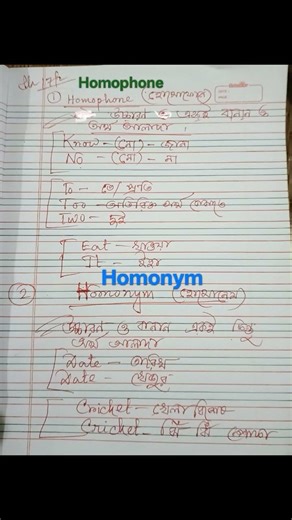 Homophone
① Homophone (হোমোফোন)
উচ্চারণ ও একই বানান ও
অর্থ আলাদা।
Know – (নো) – জানা
No – (নো) – না
To – তে/প্রতি
Too – অতিরিক্ত অর্থ
Two – দুই
Eat – খাওয়া
It – ইহা
Homonym
② Homonym (হোমোনেম)
উচ্চারণ ও বানান একই কিন্তু
অর্থ আলাদা
Date – তারিখ
Date – খেজুর
Cricket – খেলা
Cricket – ঝিঁ ঝিঁ পোকা